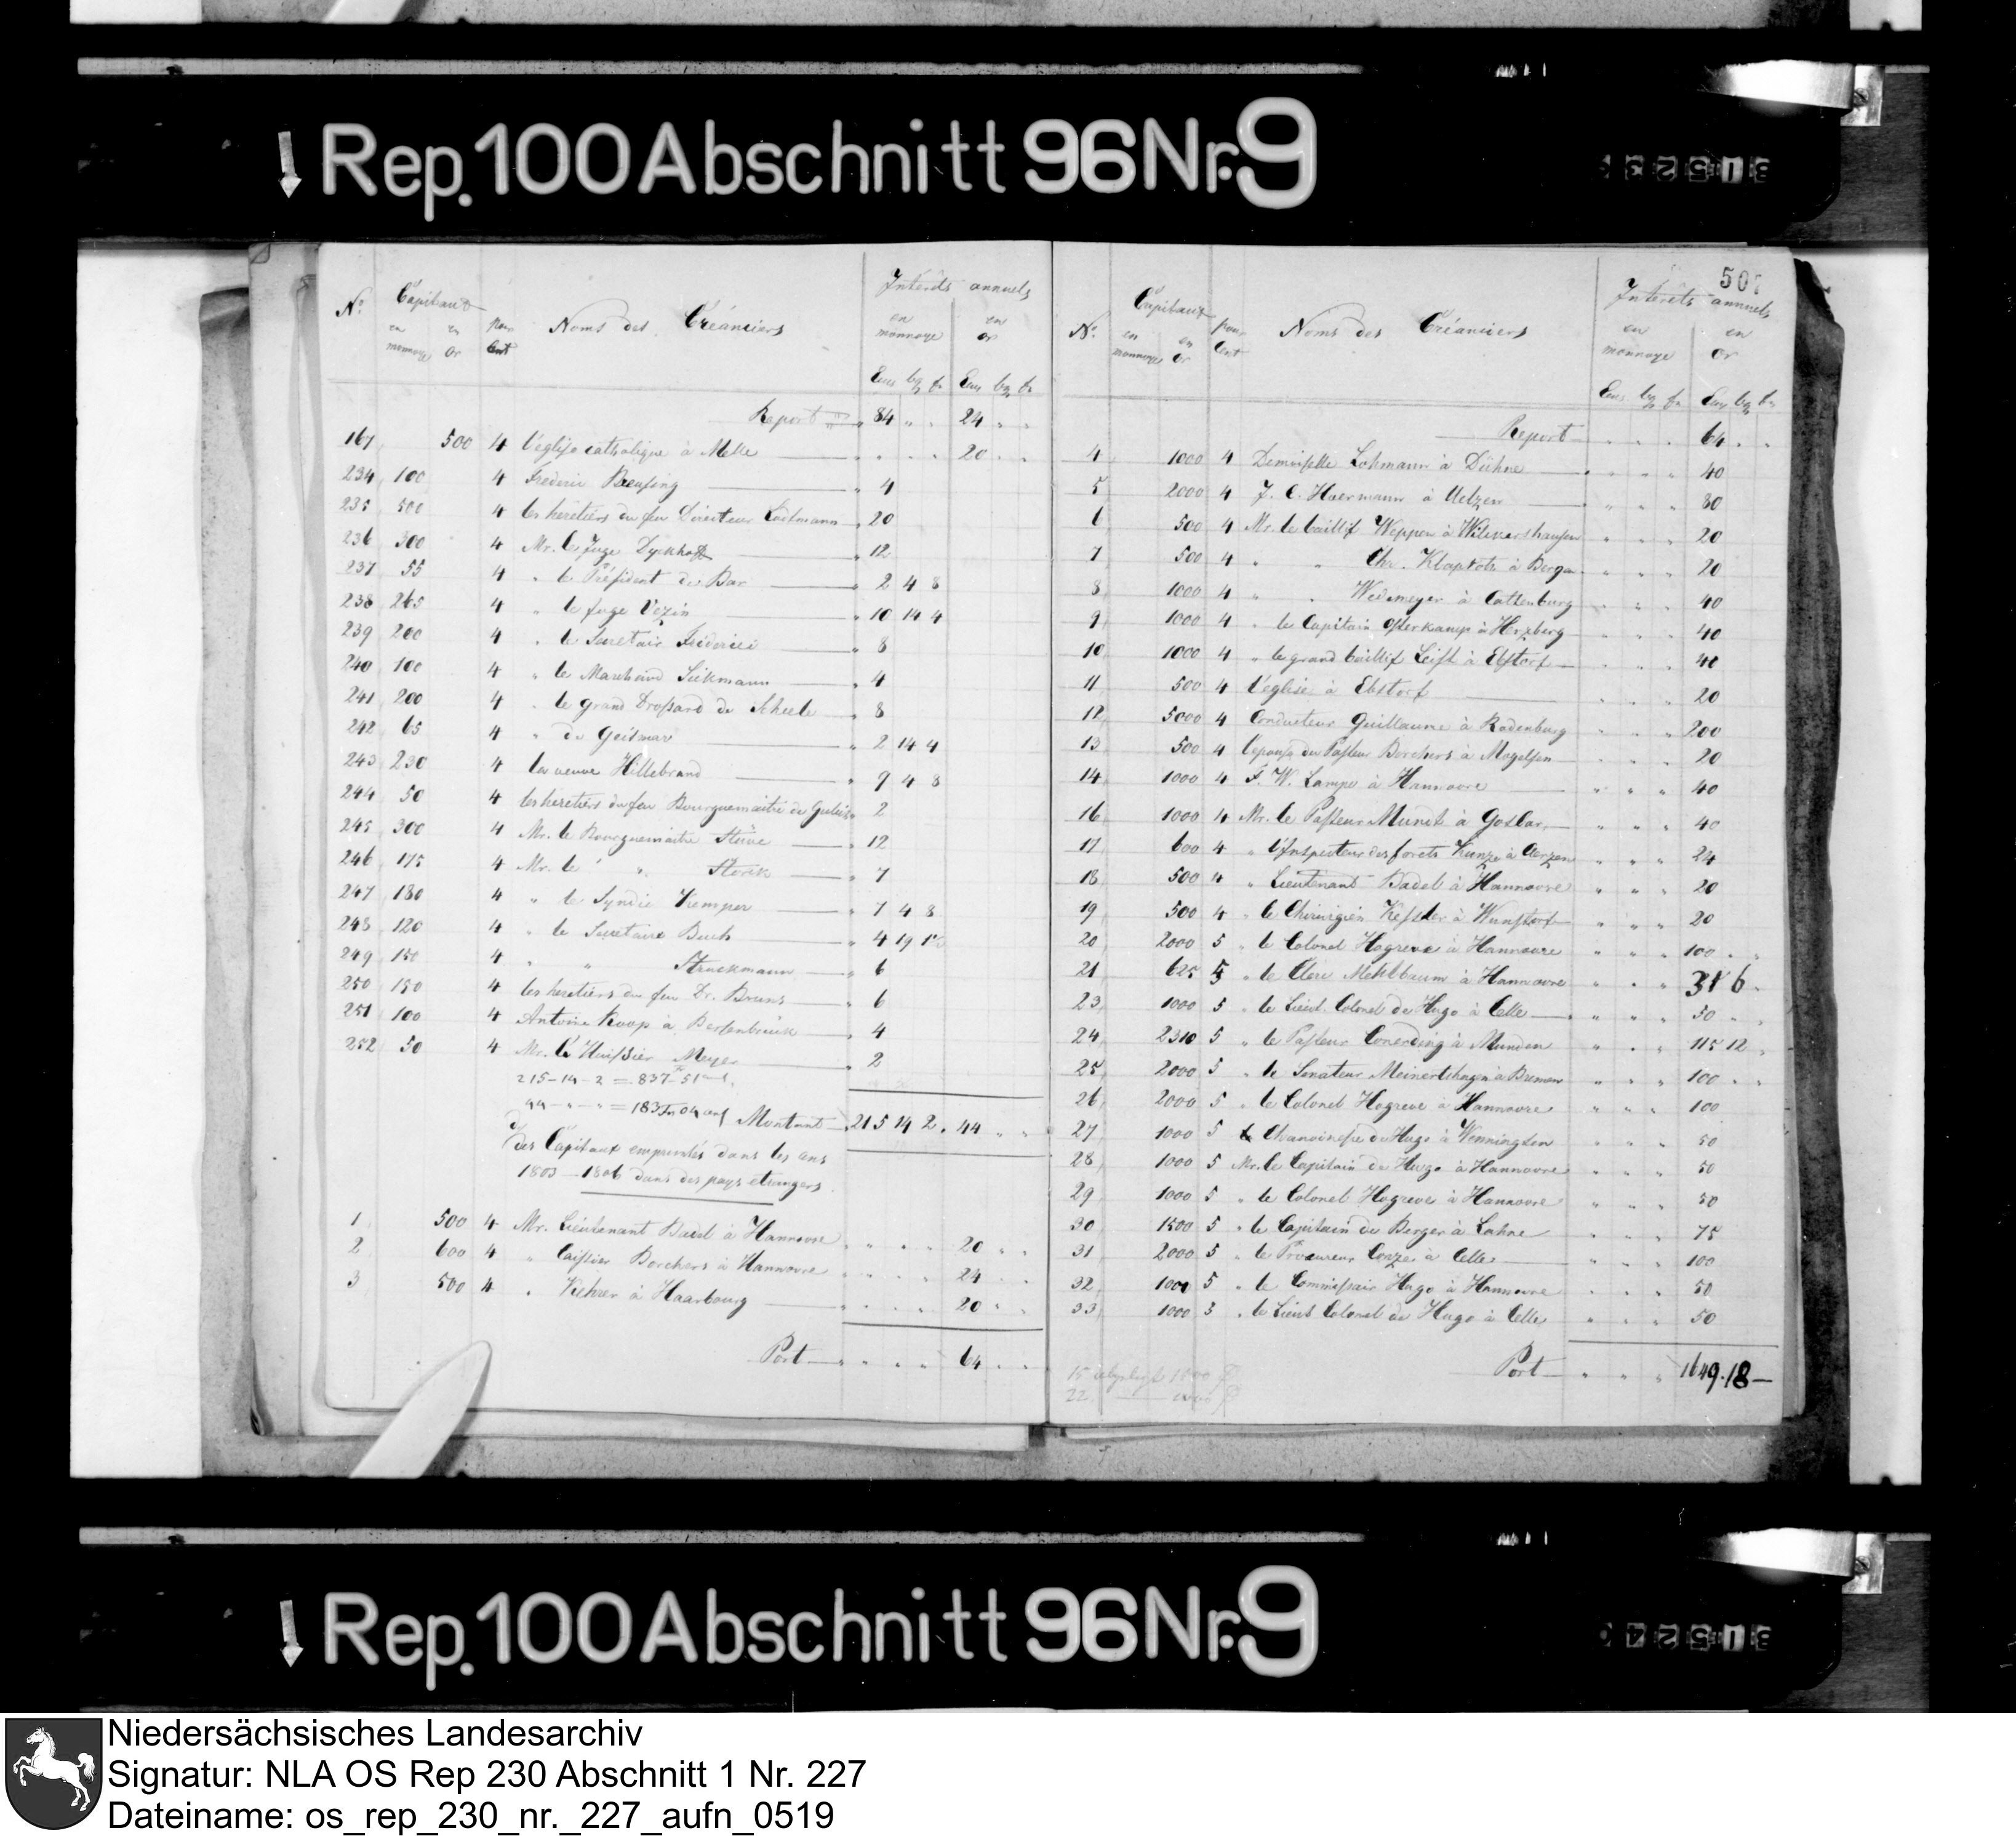 Rep. 100 Abschnitt 96 Nr. 9
31523
No. Capitaux en monnaye en or pour Cent Noms des Créanciers Interêts annuels en monnaye en or
Ecus bg fn Ecus bg fn
Report 84 " " 24 " "
167 500 4 l'eglise catholique à Melle " " " 20 " "
234 100 4 Frederic Breusing 4
235 500 4 les heretiers du feu Directeur Lodtmann 20
236 300 4 Mr. le Juge Dyckhoff 12
237 55 4 " le Président de Bar 2 4 8
238 265 4 " le juge Vezin 10 14 4
239 200 4 " le Secretair Friderici 8
240 100 4 " le Marchand Siekmann 4
241 200 4 " le grand Drossard de Schele 8
242 65 4 " de Geismar 2 14 4
243 230 4 la veuve Hillebrand 9 4 8
244 50 4 les heretiers du feu Bourguemaitre de 2
245 300 4 Mr. le Bourguemaitre Stüve 12
246 175 4 Mr. le " Storck 7
247 180 4 " le Syndic Kemper 7 4 8
248 120 4 " le Secretaire Buch 4 19
249 150 4 " " Struckmann 6
250 150 4 les heretiers du feu Dr. Bruns 6
251 100 4 Antoine Koop à Bersenbrück 4
252 50 4 Mr. l'Huissier Meyer 2
215-14-2 = 837 51
44 - " - " = 183 04 Montant 215 14 2 . 44 " "
des Capitaux empruntés dans les ans
1803 - 1806 dans des pays etrangers.
1 500 4 Mr. Lieutenant Badel à Hannovre " " " 20 " "
2 600 4 " Caissier Borchers à Hannovre " " " 24 " "
3 500 4 " Kehrer à Haarbourg " " " 20 " "
Port " " " 64 " "
50
No. Capitaux en monnaye en or pour Cent Noms des Créanciers Interêts annuels en monnaye en or
Ecus bg fn Ecus bg fn
Report " " " 64 " "
4 1000 4 Demoiselle Lohmann à Döhne " " " 40
5 2000 4 J. C. Haermann à Uelzen " " " 80
6 500 4 Mr. le baillif Weppen à Wikershausen " " " 20
7 500 4 " " Chr. Klaproth à Bergen " " " 20
8 1000 4 " " Wedemeyer à Cattenburg " " " 40
9 1000 4 " le Capitain Osterkamp à Herzberg " " " 40
10 1000 4 " le grand baillif Leist à Ebstorf " " " 40
11 500 4 l'eglise à Ebstorf " " " 20
12 5000 4 Conducteur Guillaume à Rodenburg " " " 200
13 500 4 l'epouse du Pasteur Borchers à Mogelsen " " " 20
14 1000 4 F. W. Lampe à Hannovre " " " 40
16 1000 4 Mr. le Pasteur Mundt à Goslar " " " 40
17 600 4 " l'Inspecteur des forets Kunze à Aerzen " " " 24
18 500 4 " Lieutenant Badel à Hannovre " " " 20
19 500 4 " le Chirurgien Kessler à Wunstorf " " " 20
20 2000 5 " le Colonel Hogreve à Hannovre " " " 100 " "
21 625 5 " le Clerc Mehlbaum à Hannovre " " " 31 6
23 1000 5 " le Lieut. Colonel de Hugo à Celle " " " 50 " "
24 2310 5 " le Pasteur Conerding à Munden " " " 115 12
25 2000 5 " le Senateur Meinertzhagen à Bremen " " " 100 " "
26 2000 5 " le Colonel Hogreve à Hannovre " " " 100
27 1000 5 la Chanoinesse de Hugo à Wennigsen " " " 50
28 1000 5 Mr. le Capitain de Hugo à Hannovre " " " 50
29 1000 5 " le Colonel Hogreve à Hannovre " " " 50
30 1500 5 " le Capitain de Berger à Lahne " " " 75
31 2000 5 " le Procureur Conze à Celle " " " 100
32 1000 5 " le Commissair Hugo à Hannovre " " " 50
33 1000 5 " le Lieut Colonel de Hugo à Celle " " " 50
Port " " " 1649 . 18 —
15 abgelegt 1000
22 —
Rep. 100 Abschnitt 96 Nr. 9
31524
Niedersächsisches Landesarchiv
Signatur: NLA OS Rep 230 Abschnitt 1 Nr. 227
Dateiname: os_rep_230_nr._227_aufn_0519